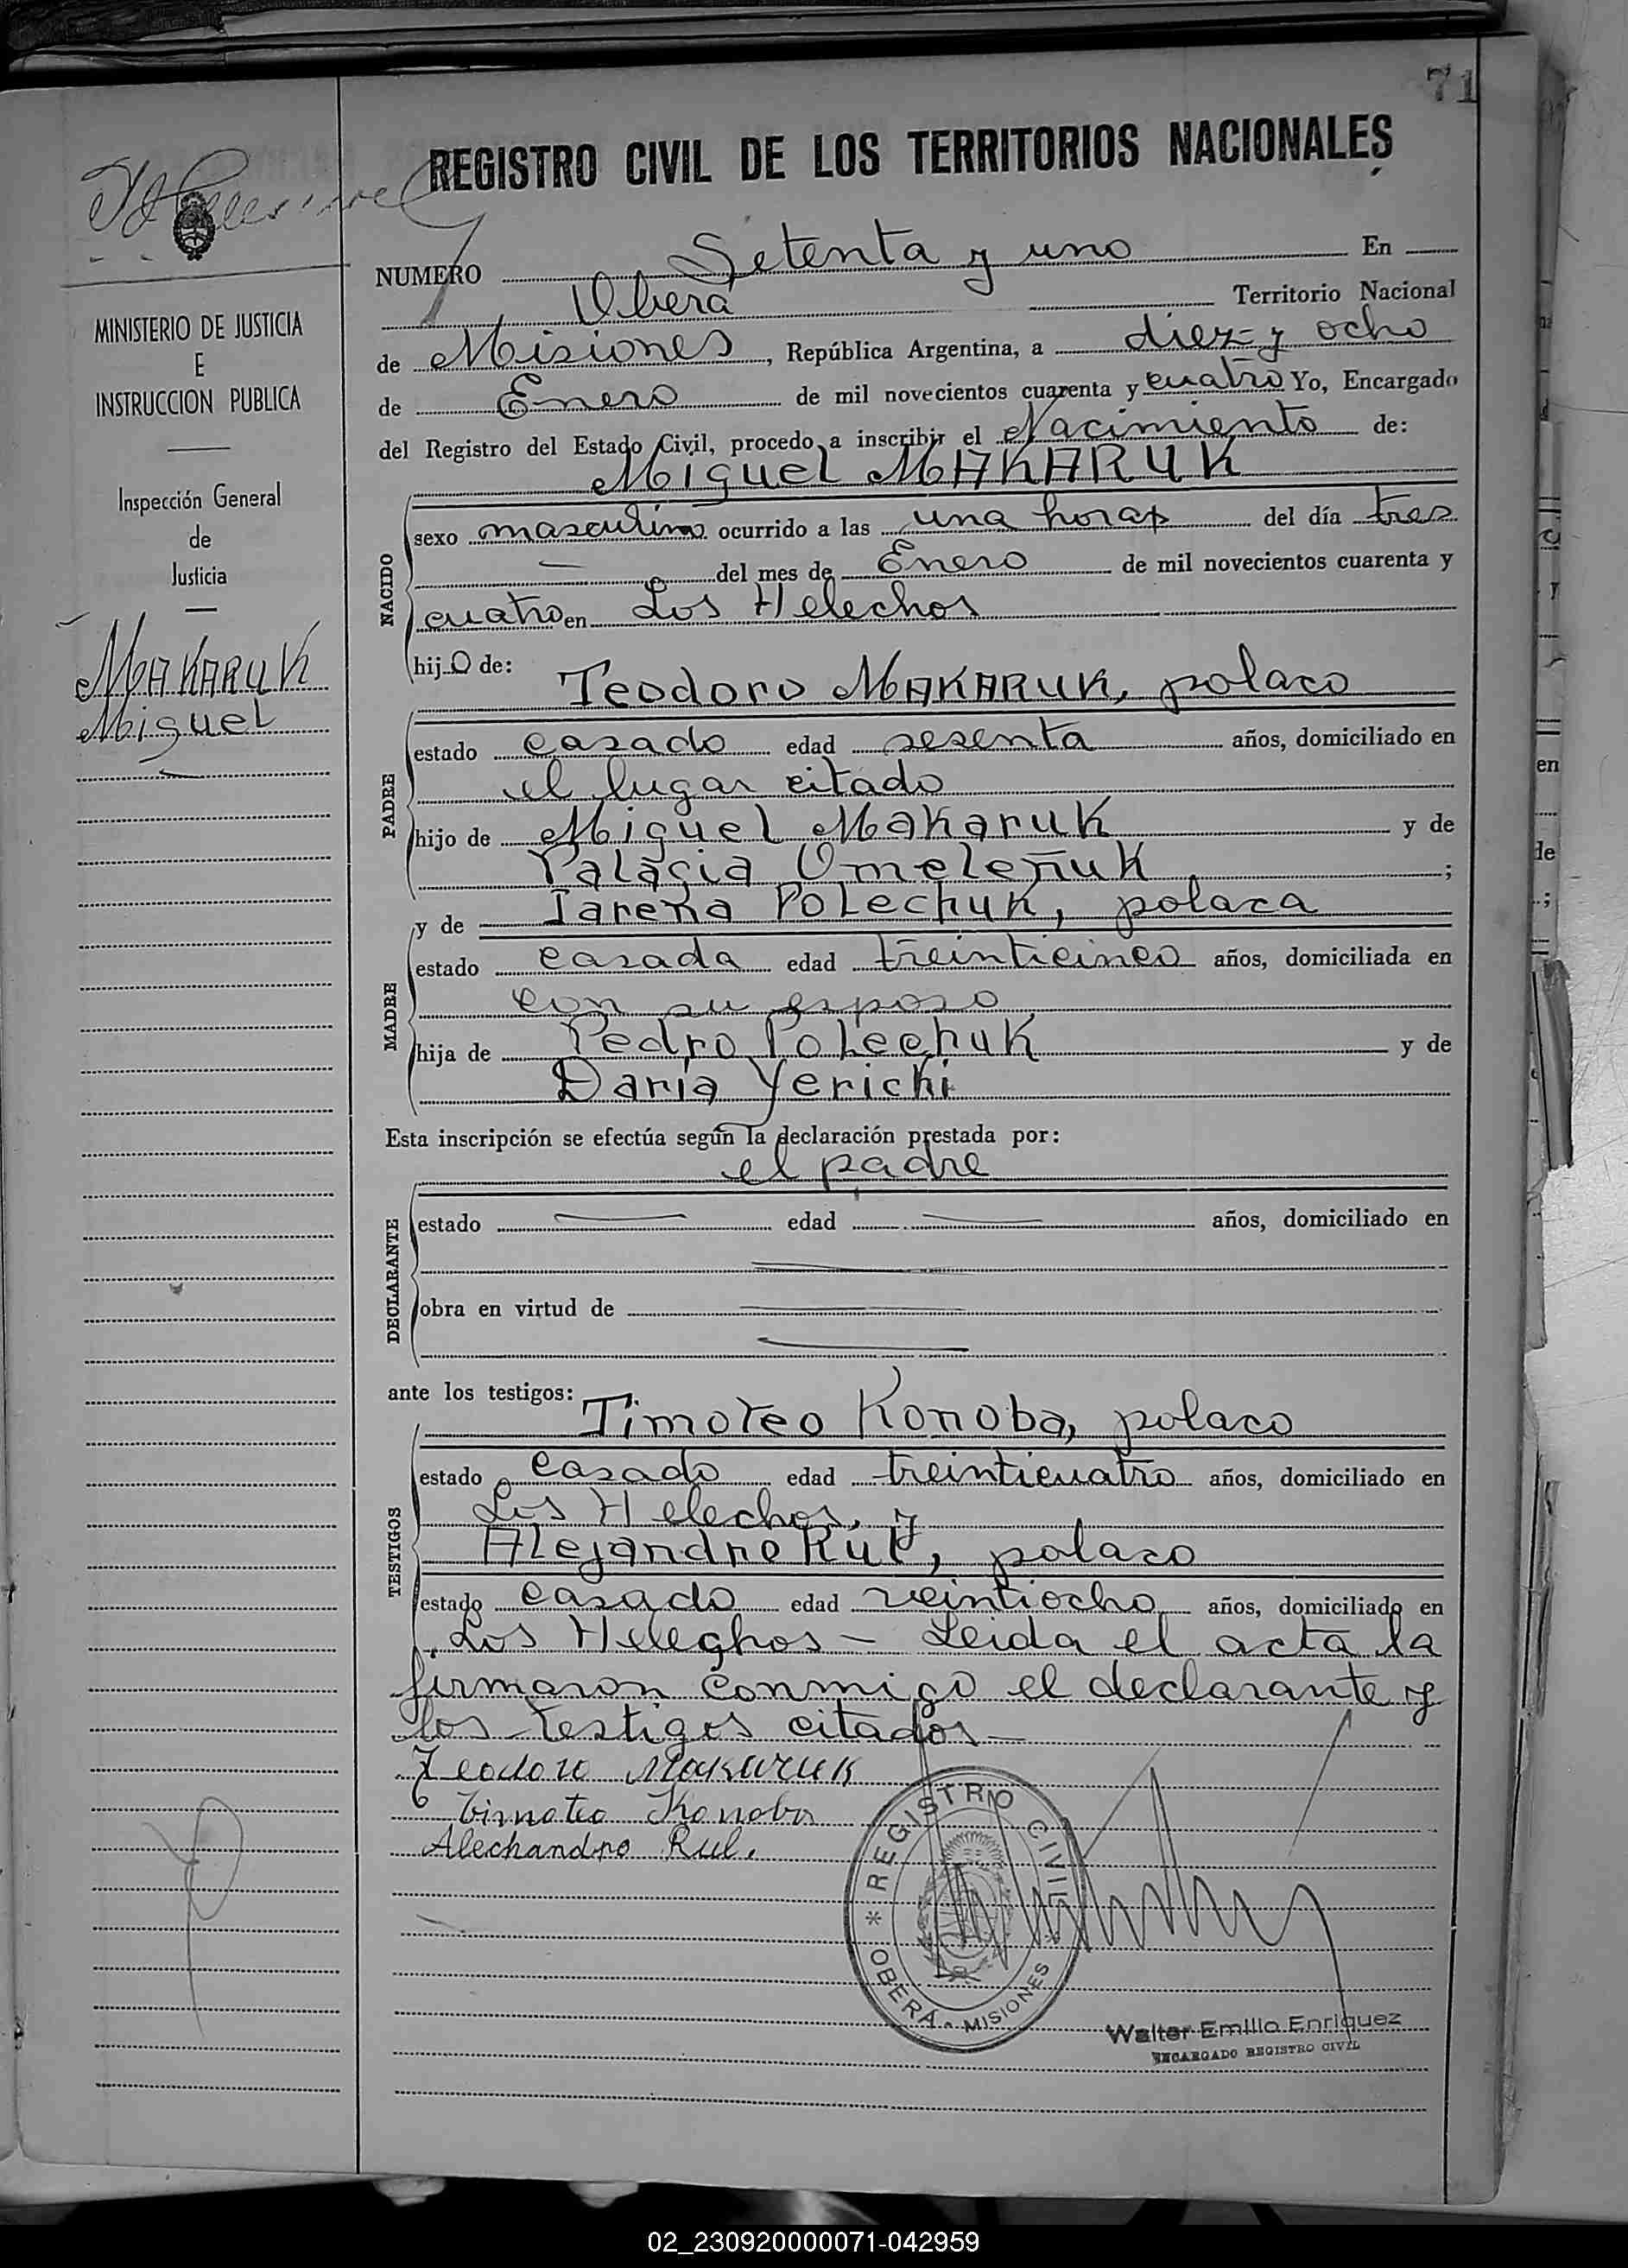 71
REGISTRO CIVIL DE LOS TERRITORIOS NACIONALES
MINISTERIO DE JUSTICIA
E
INSTRUCCION PUBLICA
Inspección General
de
Justicia
MAKARUK
Miguel
NUMERO Setenta y uno En
Oberá Territorio Nacional
de Misiones, República Argentina, a diez y ocho
de Enero de mil novecientos cuarenta y cuatro Yo, Encargado
del Registro del Estado Civil, procedo a inscribir el Nacimiento de:
Miguel MAKARUK
NACIDO
sexo masculino ocurrido a las una horas del día tres
— del mes de Enero de mil novecientos cuarenta y
cuatro en Los Helechos
hijo de:
Teodoro MAKARUK, polaco
PADRE
estado casado edad sesenta años, domiciliado en
el lugar citado
hijo de Miguel Makaruk y de
Palagia Omeleñuk ;
y de Tareña Polechuk, polaca
MADRE
estado casada edad treinticinco años, domiciliada en
con su esposo
hija de Pedro Polechuk y de
Daria Yerichi
Esta inscripción se efectúa según la declaración prestada por:
el padre
DECLARANTE
estado — edad — años, domiciliado en
obra en virtud de
ante los testigos:
Timoteo Konoba, polaco
TESTIGOS
estado casado edad treinticuatro años, domiciliado en
Los Helechos, y
Alejandro Rul, polaco
estado casado edad veintiocho años, domiciliado en
Los Heleghos – Leida el acta la
firmaron conmigo el declarante y
los testigos citados —
Teodoro Makaruk
Timoteo Konoba
Alechandro Rul.
* REGISTRO CIVIL *
OBERÁ - MISIONES
Walter Emilio Enriquez
ENCARGADO REGISTRO CIVIL
02_230920000071-042959